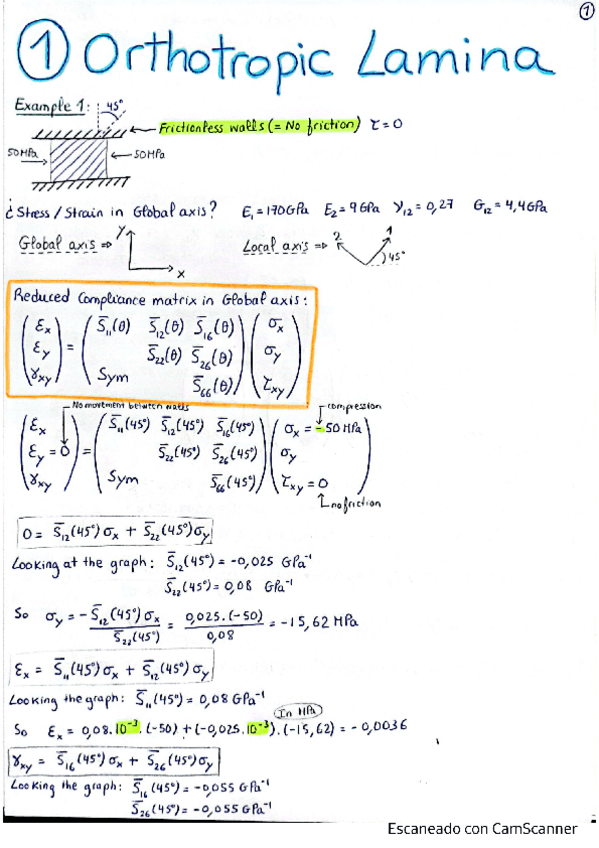 ①
① Orthotropic Lamina
Example 1: 45°
Frictionless walls (= No friction) τ=0
50MPa 50MPa
¿Stress/Strain in Global axis? E₁=170GPa E₂=9GPa γ₁₂=0,27 G₁₂=4,4GPa
Global axis ⇒ Y x Local axis ⇒ 2 1 45°
Reduced Compliance matrix in Global axis:
(εx) = (S̄₁₁(θ) S̄₁₂(θ) S̄₁₆(θ)) (σx)
(εy) (S̄₂₂(θ) S̄₂₆(θ)) (σy)
(γxy) (Sym S̄₆₆(θ)) (τxy)
No movement between walls compression
(εx) = (S̄₁₁(45°) S̄₁₂(45°) S̄₁₆(45°)) (σx = -50MPa)
(εy = 0) (S̄₂₂(45°) S̄₂₆(45°)) (σy)
(γxy) (Sym S̄₆₆(45°)) (τxy = 0)
no friction
0 = S̄₁₂(45°)σx + S̄₂₂(45°)σy
Looking at the graph: S̄₁₂(45°) = -0,025 GPa⁻¹
S̄₂₂(45°) = 0,08 GPa⁻¹
So σy = -S̄₁₂(45°)σx / S̄₂₂(45°) = 0,025·(-50) / 0,08 = -15,62 MPa
εx = S̄₁₁(45°)σx + S̄₁₂(45°)σy
Looking the graph: S̄₁₁(45°) = 0,08 GPa⁻¹
In MPa
So εx = 0,08·10⁻³·(-50) + (-0,025·10⁻³)·(-15,62) = -0,0036
γxy = S̄₁₆(45°)σx + S̄₂₆(45°)σy
Looking the graph: S̄₁₆(45°) = -0,055 GPa⁻¹
S̄₂₆(45°) = -0,055 GPa⁻¹
Escaneado con CamScanner